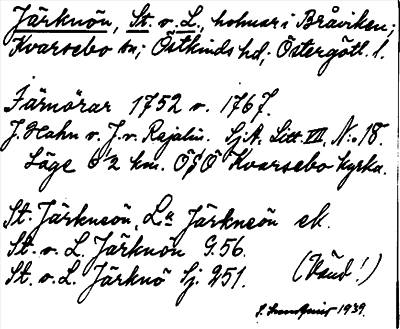 Järknön, St. o. L., holmar i Bråviken;
Kvarsebo sn; Östkinds hd, Östergötl. l.
Järnörar 1752 o. 1767.
J. Hahn o. J. v. Rajalin. SjA. Litt. VII, No. 18.
Läge 6 1/2 km. ÖSÖ Kvarsebo kyrka.
St. Järkneön, La Järkneön ek.
St. o. L. Järknön G. 56.
St. o. L. Järknö Sj. 251. (Vänd!)
1939.